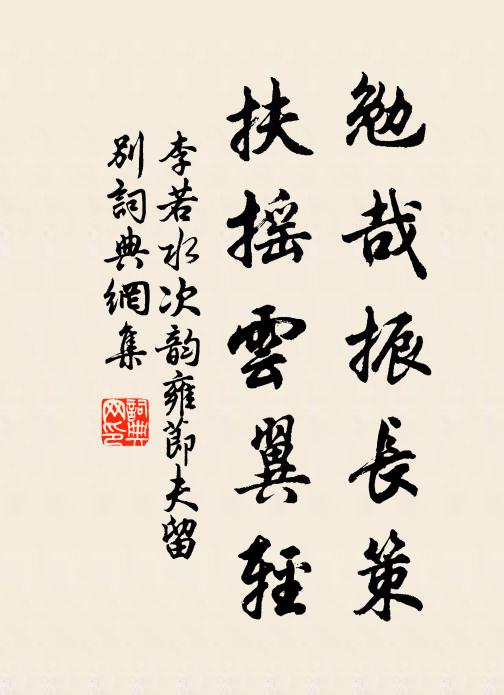 勉哉振長策
扶摇雲翼輕
李若水次韵雍節夫留
别詞典網集
詞典網印